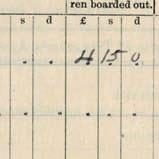 ren boarded out.
s d £ s d
. . 4 15 0
. . . . .